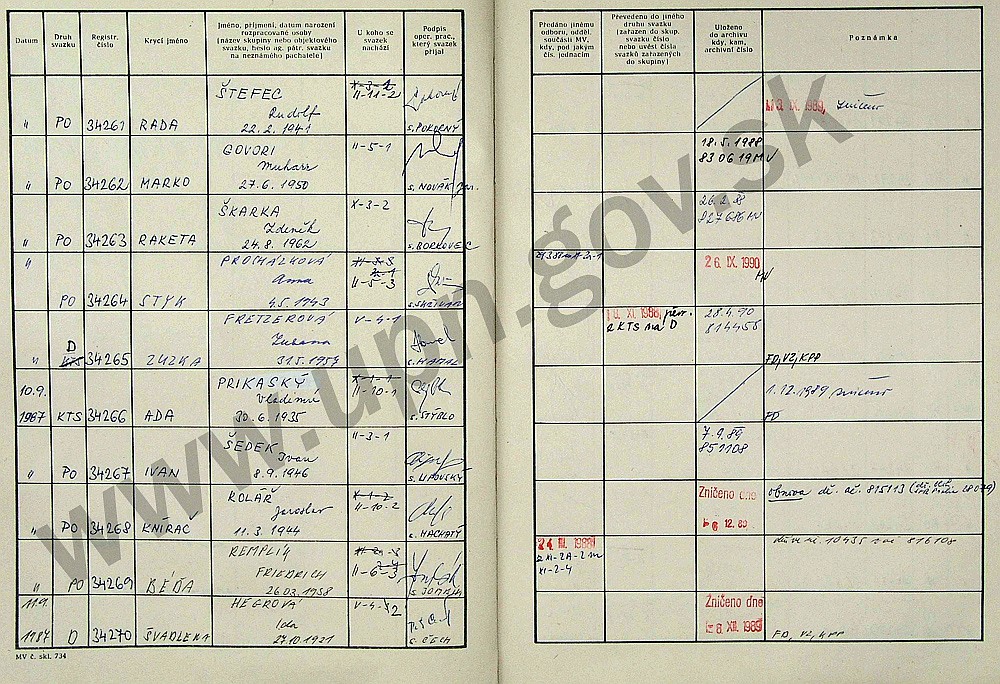 Datum
Druh svazku
Registr. číslo
Krycí jméno
Jméno, příjmení, datum narození
rozpracované osoby
(název skupiny nebo objektového
svazku, heslo ag. pátr. svazku
na neznámého pachatele)
U koho se
svazek
nachází
Podpis
oper. prac.,
který svazek
přijal
Předáno jinému
odboru, odděl.
součásti MV,
kdy, pod jakým
čís. jednacím
Převedeno do jiného
druhu svazku
(zařazen do skup.
svazku číslo
nebo uvést čísla
svazků zařazených
do skupiny)
Uloženo
do archivu
kdy, kam,
archivní číslo
Poznámka
ŠTEFEC
II-11-2
Rudolf
" PO 34261 RADA 22. 2. 1941 s. POKORNÝ
IX. 1989, zničen
GOVORI II-5-1
Muharr
" PO 34262 MARKO 27. 6. 1950 s. NOVÁK
18. 5. 1988
830619 MV
ŠKARKA X-3-2
Zdeněk
" PO 34263 RAKETA 24. 8. 1962 s. BORKOVEC
26. 2. 88
827686 MV
" PROCHÁZKOVÁ
Anna II-5-3
PO 34264 STYK 4.5. 1943
26. IX. 1990
MV
FRETZEROVÁ V-4-1
D Zuzana
" KTS 34265 ZUZKA 31.5. 1957 s. HAMAL
XI. 1988
z KTS na D
28.4. 90
814456
FD, VZ, KPP
10.9. PRIKASKÝ X-1-1
Vladimír II-10-1
1987 KTS 34266 ADA 30. 6. 1935 s. STÝBLO
1. 12. 1989 zničen
FD
ŠEDEK II-3-1
Ivan
" PO 34267 IVAN 8. 9. 1946 s. LIPOVSKÝ
7. 9. 89
851108
KOLÁŘ X-1-2
Jaroslav II-10-2
" PO 34268 KNÍRAČ 11. 3. 1944 s. MACHATÝ
Zničeno dne
6 12. 89
obnova
815113
REMPLIK
FRIEDRICH II-6-3
" PO 34269 BÉĎA 26.02. 1958
24. III. 1988
XI-2-4
816108
11.9. HEGROVÁ V-4-2
Ida
D 34270 ŠVADLENA 27. 10 1921 s. ČECH
Zničeno dne
8. XII. 1989
FD, VZ, KPP
MV č. skl. 734
www.upn.gov.sk